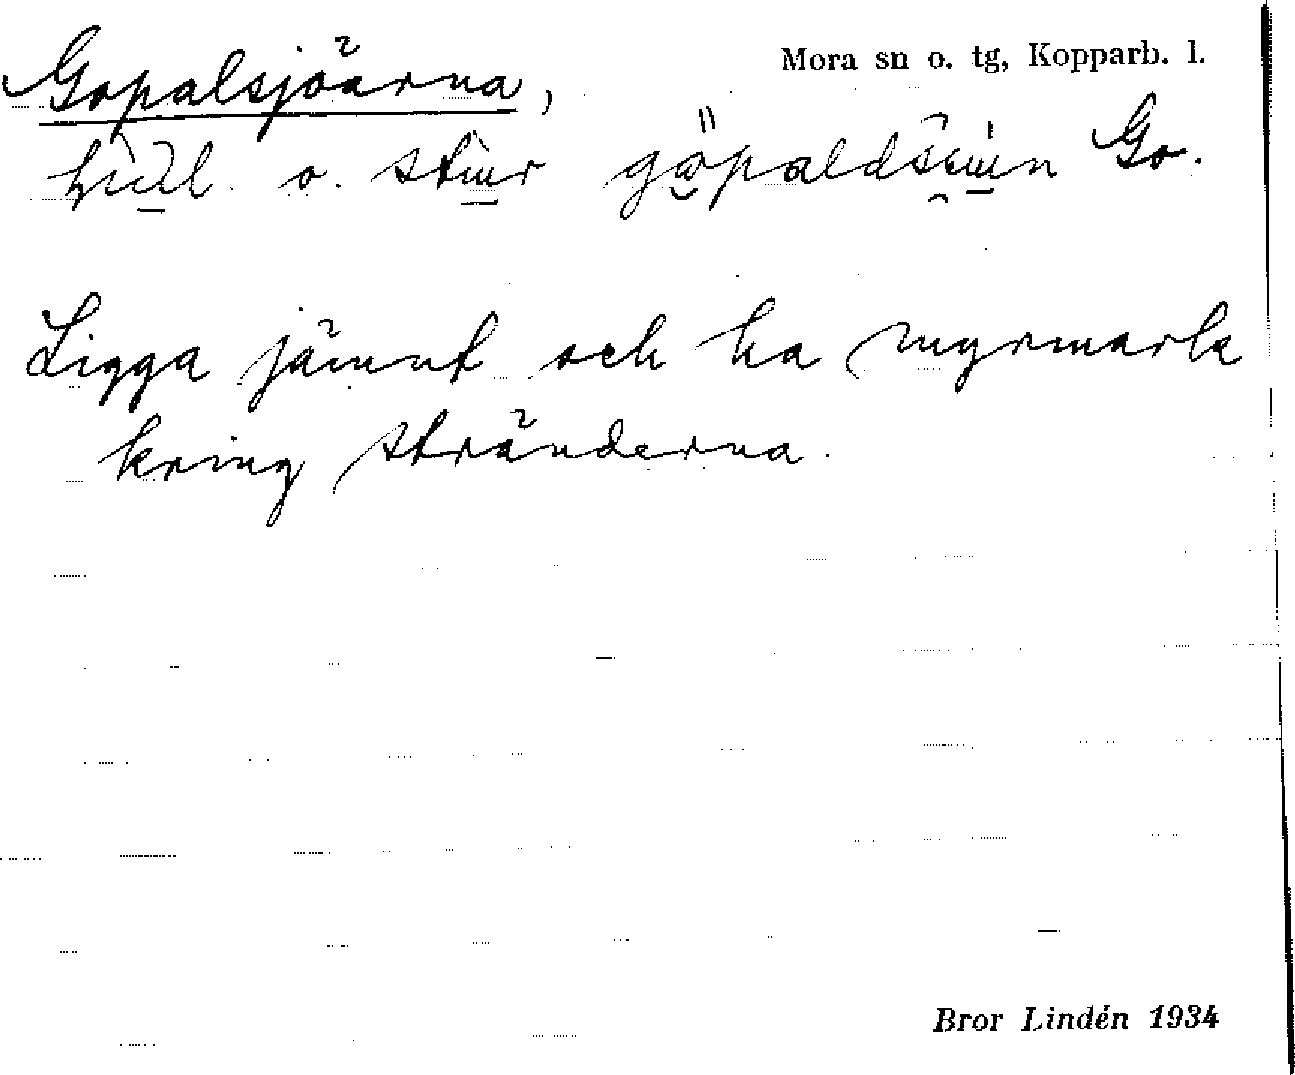 Mora sn o. tg, Kopparb. l.
Gopalsjöarna,
o. Go.
Ligga jämnt och ha myrmark
kring stränderna.
Bror Lindén 1934